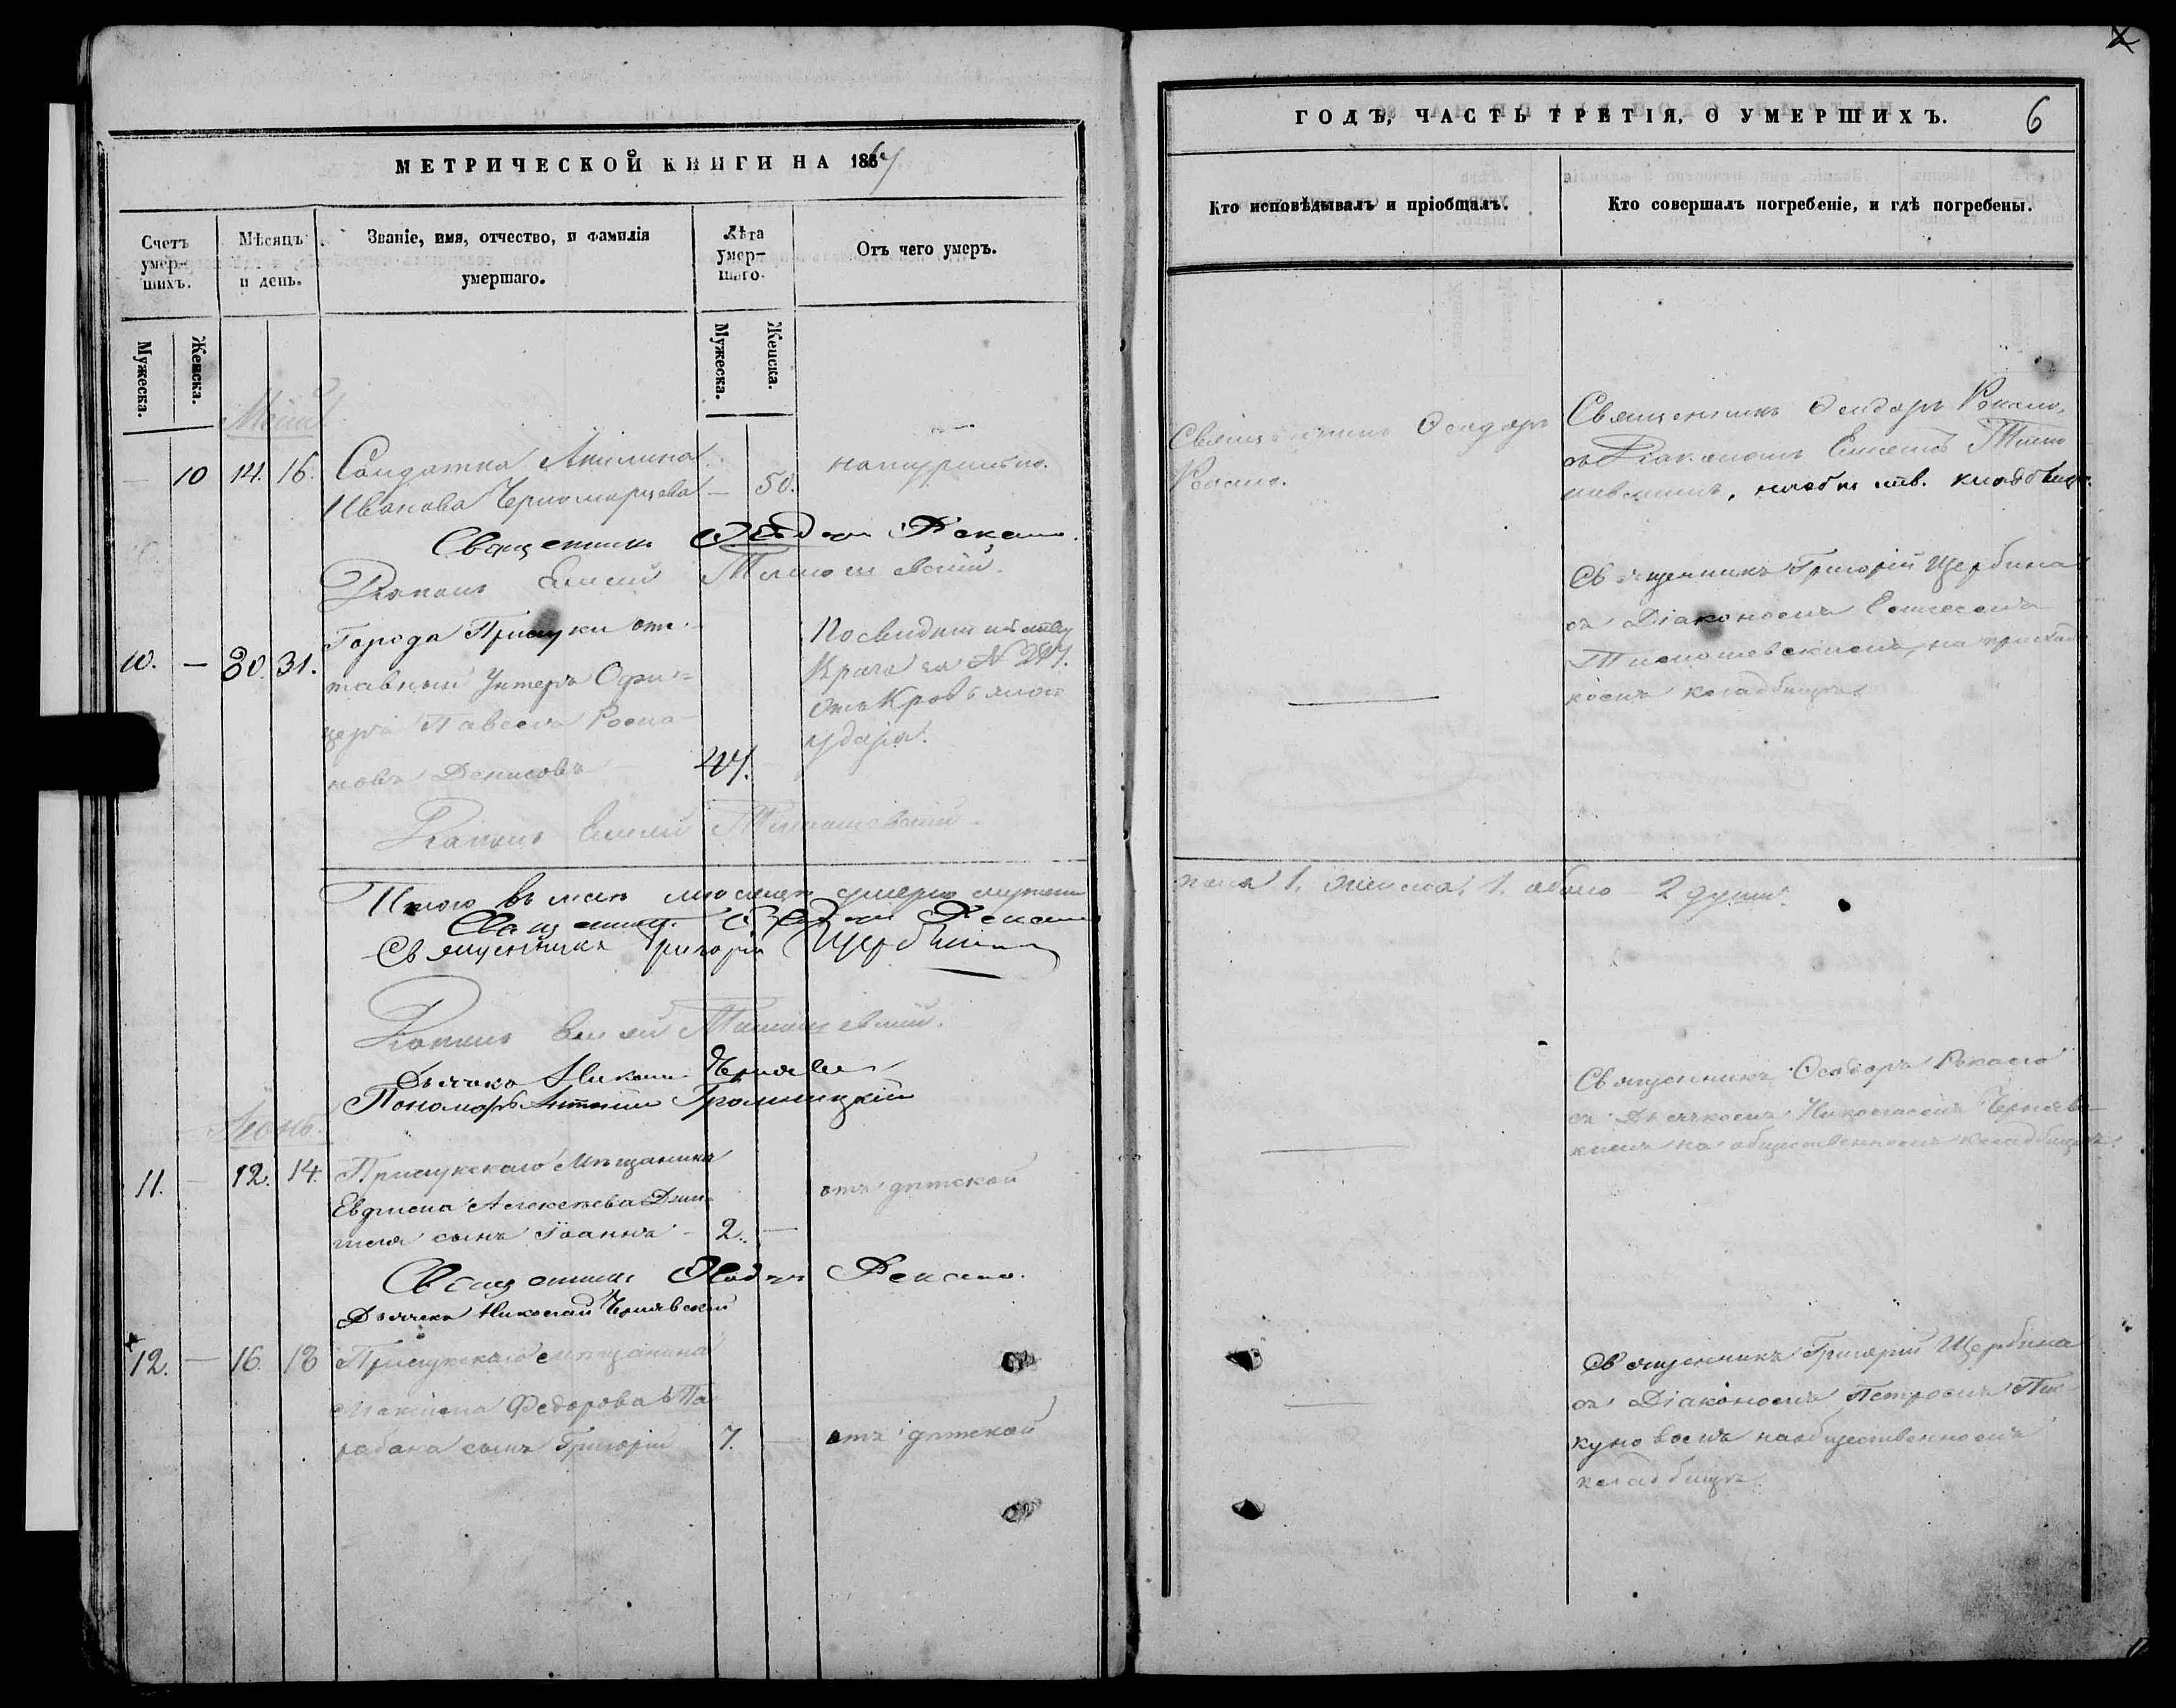 МЕТРИЧЕСКОЙ КНИГИ НА 1867
Счетъ умер-шихъ.
Мѣсяцъ и день.
Званіе, имя, отчество, и фамилія умершаго.
Лѣта умер-шаго.
Отъ чего умеръ.
Мужеска.
Женска.
Мужеска.
Женска.
Май
10 14. 16. Солдатка Акилина
Иванова Черноморцева – 50. натурально.
Священникъ Феодоръ Рекало.
Діаконъ Елисей Тимошевскій.
10. – 30. 31. Города Прилуки отс-
тавный Унтеръ Офи-
церъ Павелъ Рома-
новъ Денисовъ – 47.
По свидѣтельству
Врача за № 247.
отъ Кровяного
удара.
Діаконъ Елисей Тимошевскій
Итого въ маѣ мѣсяцѣ умерло мужеска
Священникъ Феодоръ Рекало
Священникъ Григорій Щербина
Діаконъ Елисей Тимошевскій.
Дьячокъ Николай Чернявскій
Пономарь Антоній Громницкій
Іюнь.
11. – 12. 14. Прилукскаго Мѣщанина
Евфима Алексѣева
сынъ Іоаннъ – 2. –
отъ дѣтской
Священникъ Феодоръ Рекало.
Дьячекъ Николай Чернявскій
12. – 16. 18 Прилукскаго мѣщанина
Максима Федорова Та-
рабана сынъ Григорій 7. – отъ дѣтской
ГОДЪ, ЧАСТЬ ТРЕТІЯ, О УМЕРШИХЪ. 6
Кто исповѣдывалъ и пріобщалъ.
Кто совершалъ погребеніе, и гдѣ погребены.
Священникъ Феодоръ
Рекало.
Священникъ Феодоръ Рекало,
съ Діакономъ Елисеемъ Тимо
шевскимъ, на общ. кладбищѣ.
Священникъ Григорій Щербина
съ Діакономъ Елисеемъ
Тимошевскимъ, на приход
комъ кладбищѣ.
пола 1. женска 1. обоего – 2 души.
Священникъ Феодоръ Рекало
съ Дьячкомъ Николаемъ Чернявс-
кимъ на общественномъ кладбищѣ.
Священникъ Григорій Щербина
съ Діакономъ Петромъ Пис
куновомъ на общественномъ
кладбищѣ.